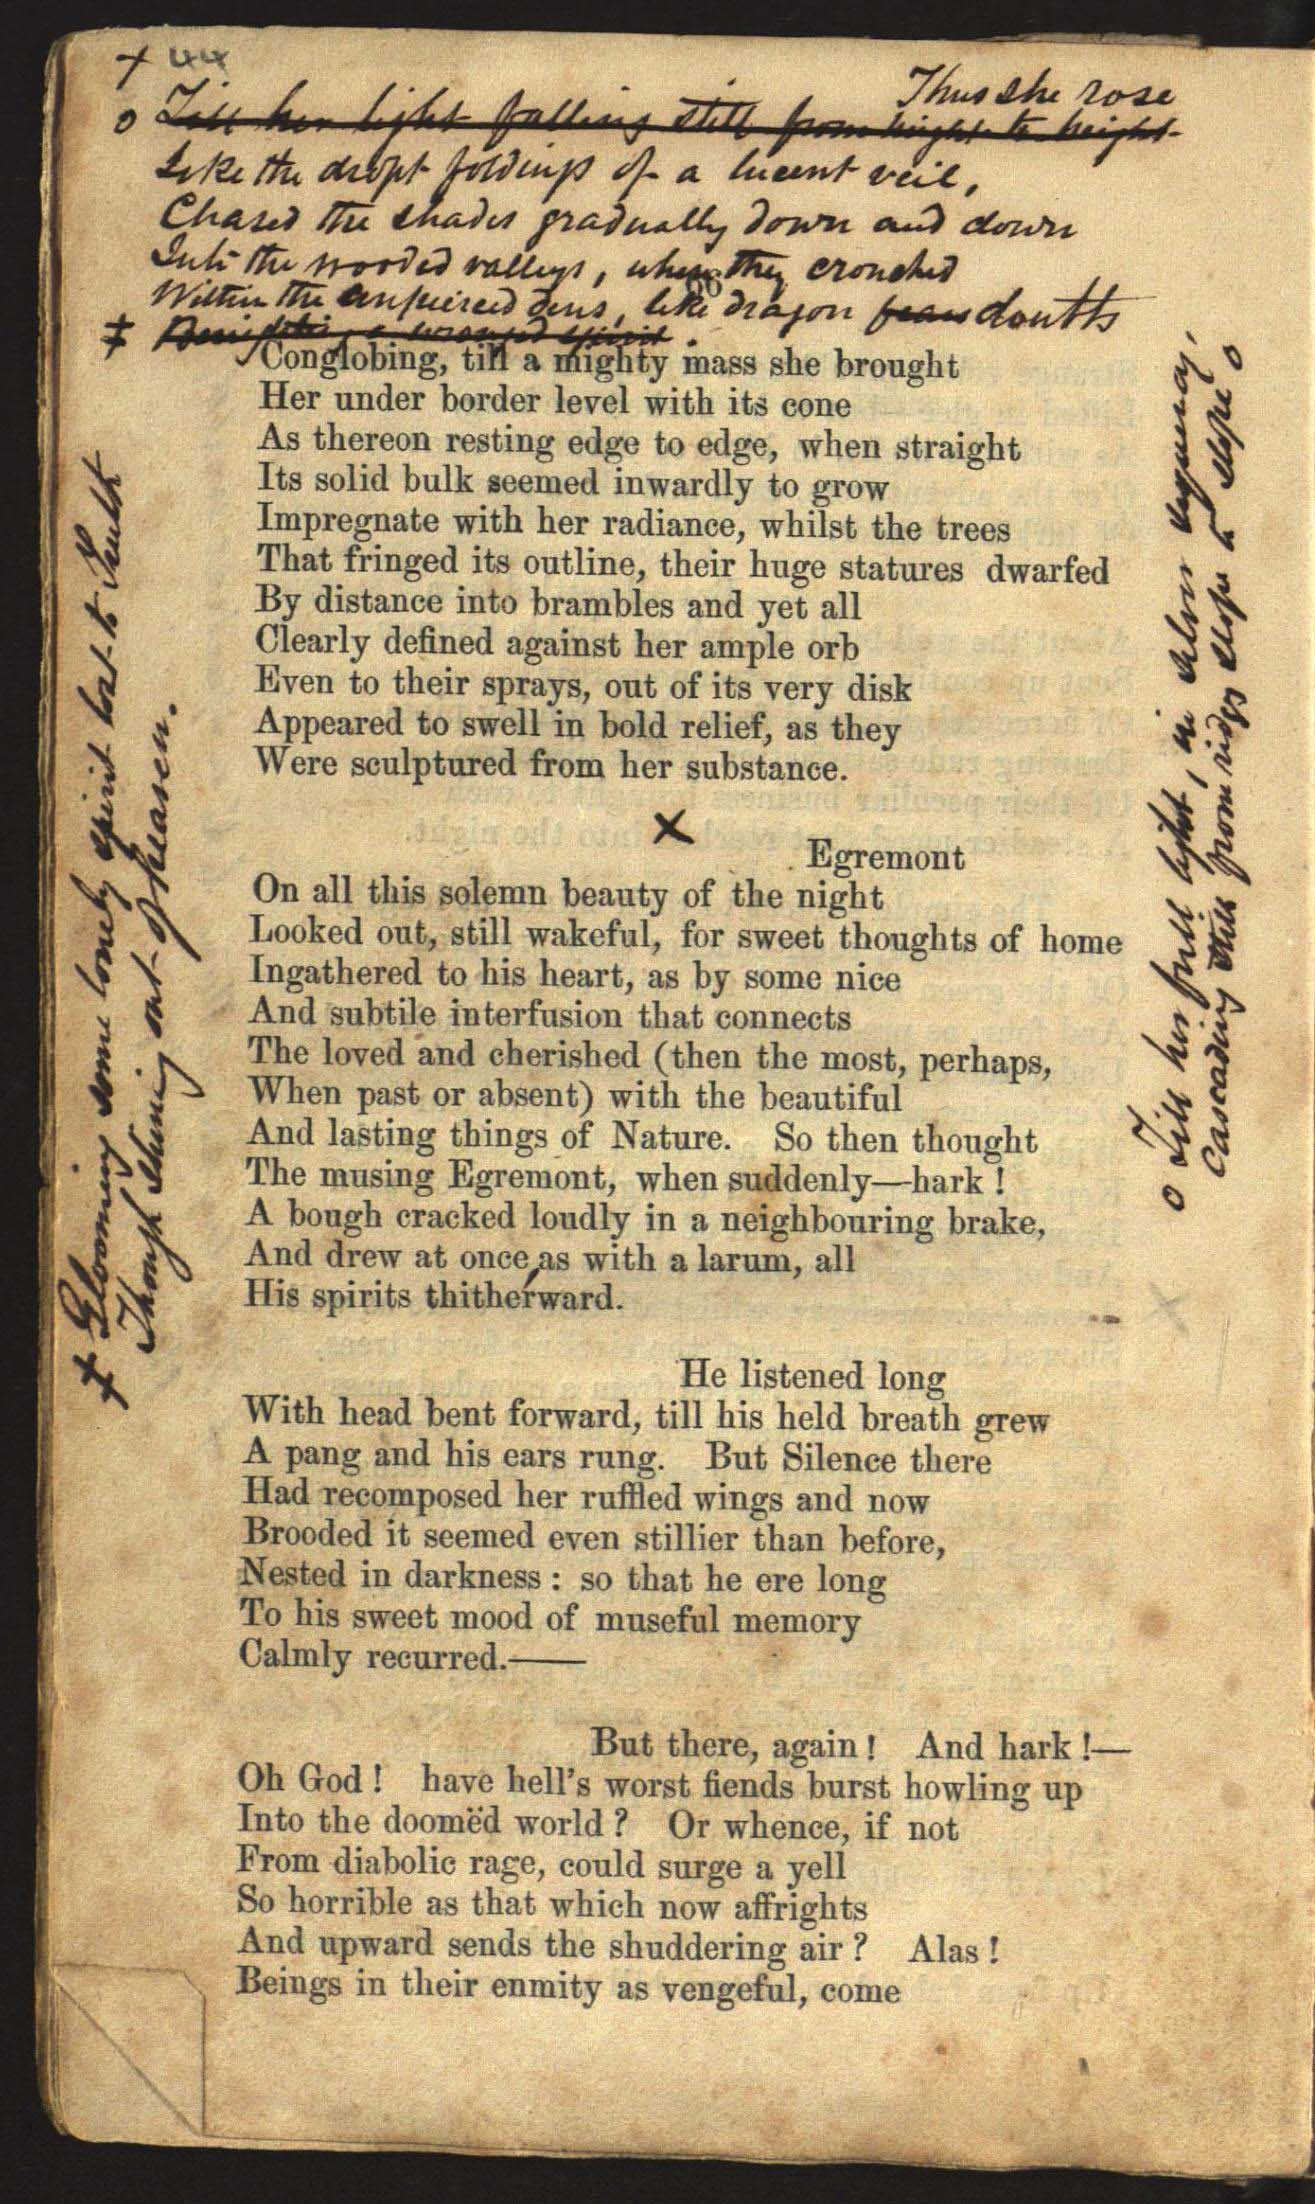 + 44
Thus she rose
o Till her light falling still from height to height
Like the dropt foldings of a lucent veil,
Chased the shades gradually down and down
Into the wooded valleys, where they crouched
66
Within the unpierced dens, like dragon fears doubts
‡ a wronged spirit.
Conglobing, till a mighty mass she brought
Her under border level with its cone
As thereon resting edge to edge, when straight
Its solid bulk seemed inwardly to grow
Impregnate with her radiance, whilst the trees
That fringed its outline, their huge statures dwarfed
By distance into brambles and yet all
Clearly defined against her ample orb
Even to their sprays, out of its very disk
Appeared to swell in bold relief, as they
Were sculptured from her substance.
X
Egremont
On all this solemn beauty of the night
Looked out, still wakeful, for sweet thoughts of home
Ingathered to his heart, as by some nice
And subtile interfusion that connects
The loved and cherished (then the most, perhaps,
When past or absent) with the beautiful
And lasting things of Nature. So then thought
The musing Egremont, when suddenly—hark !
A bough cracked loudly in a neighbouring brake,
And drew at once, as with a larum, all
His spirits thitherward.
He listened long
With head bent forward, till his held breath grew
A pang and his ears rung. But Silence there
Had recomposed her ruffled wings and now
Brooded it seemed even stillier than before,
Nested in darkness : so that he ere long
To his sweet mood of museful memory
Calmly recurred.——
But there, again ! And hark !—
Oh God ! have hell's worst fiends burst howling up
Into the doomëd world ? Or whence, if not
From diabolic rage, could surge a yell
So horrible as that which now affrights
And upward sends the shuddering air ? Alas !
Beings in their enmity as vengeful, come
‡ Glooming some lonely spirit lost to Truth
Though shining out of heaven.
o Till her full light, in silvery,
Cascading still from ridge slope to slope o